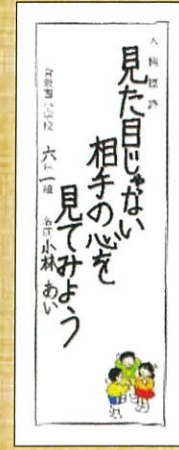 人権標語
見た目じゃない
相手の心を
見てみよう
小学校 六年一組 名前 小林 あい